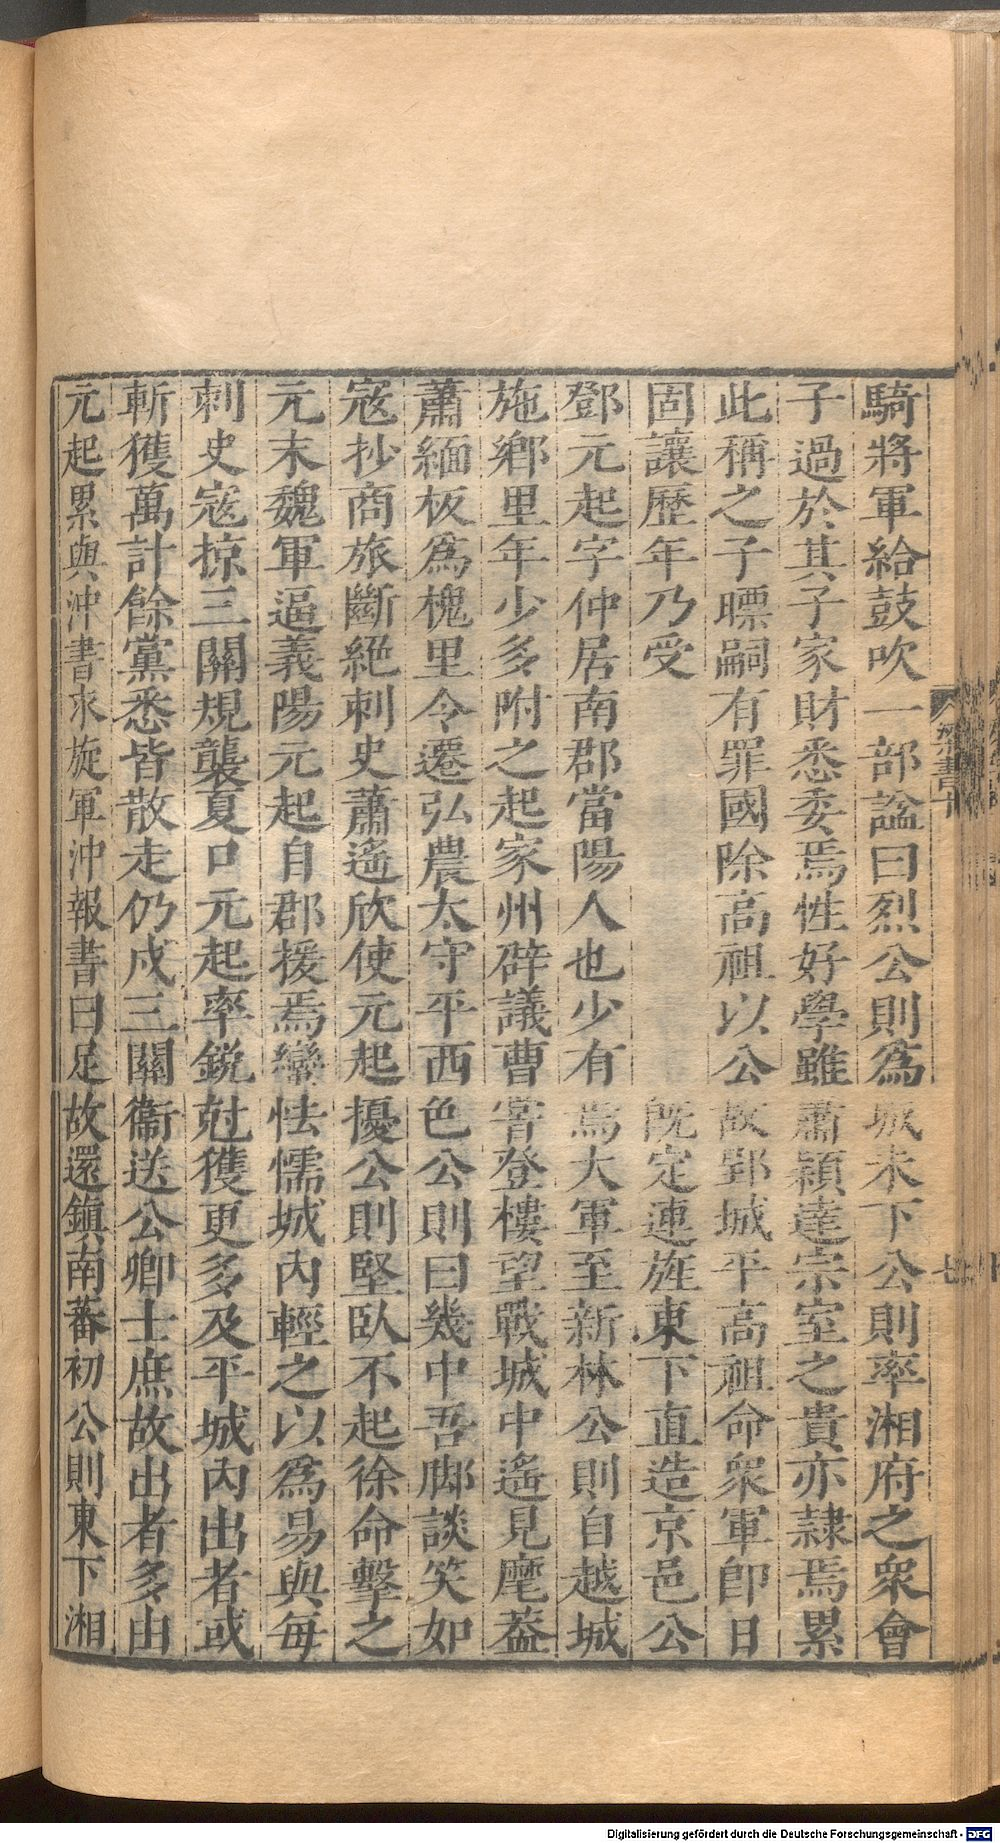 騎將軍給鼓吹一部諡曰烈公則爲城未下公則率湘府之衆會
子過於其子家財悉委焉性好學雖蕭穎達宗室之貴亦隷焉累
此稱之子瞟嗣有罪國除高祖以公故郢城平高祖命衆軍卽日
固讓歷年乃受　既定連旌東下直造京邑公
鄧元起字仲居南郡當陽人也少有焉大軍至新林公則自越城
施鄉里年少多附之起家州辟議曹嘗登樓望戰城中遙見麾葢
蕭緬板爲槐里令遷弘農太守平西色公則曰幾中吾脚談笑如
寇抄商旅斷絶刺史蕭遙欣使元起擾公則堅臥不起徐命擊之
元末魏軍逼義陽元起自郡援焉蠻怯懦城內輕之以爲易與每
刺史寇掠三關規襲夏口元起率銳尅獲更多及平城內出者或
斬獲萬計餘黨悉皆散走仍戍三關衞送公卿士庶故出者多由
元起累與沖書求旋軍沖報書曰足故還鎮南蕃初公則東下湘
Digitalisierung gefördert durch die Deutsche Forschungsgemeinschaft - DFG